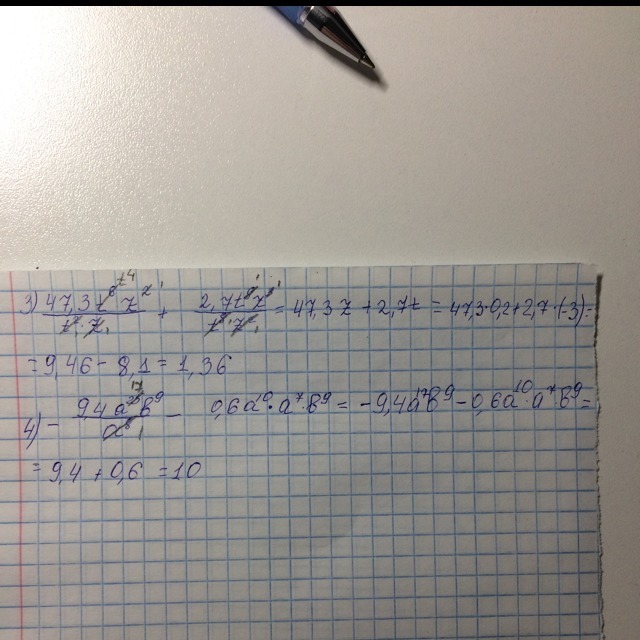 3) 47,3t⁸z² / t⁸z + 2,7t⁹z⁸ / t⁸z⁸ = 47,3z + 2,7t = 47,3·0,2+2,7·(-3)=
=9,46-8,1=1,36
4) - 9,4a b⁹ / a - 0,6a¹⁰·a⁷·b⁹ = -9,4a¹⁷b⁹-0,6a¹⁰·a⁷b⁹=
=9,4+0,6=10